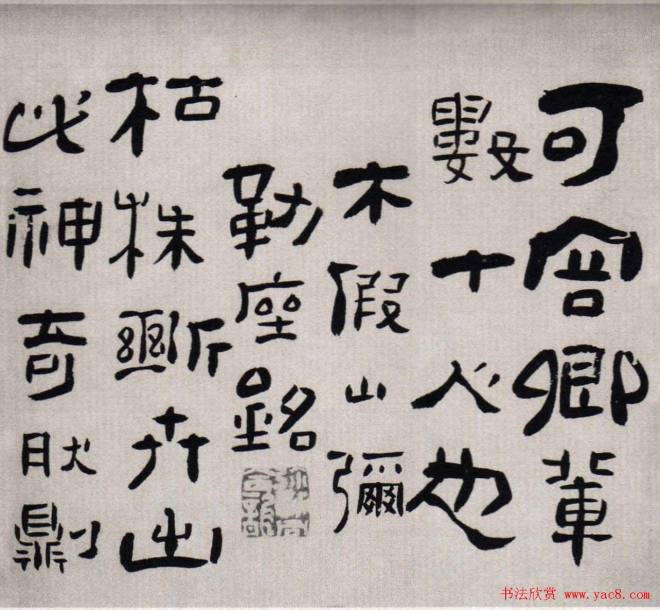 可容卿輩
數十人也
木假山彌
勒座銘
枯株斷卉出
此神奇肰則
书法欣赏 www.yac8.com